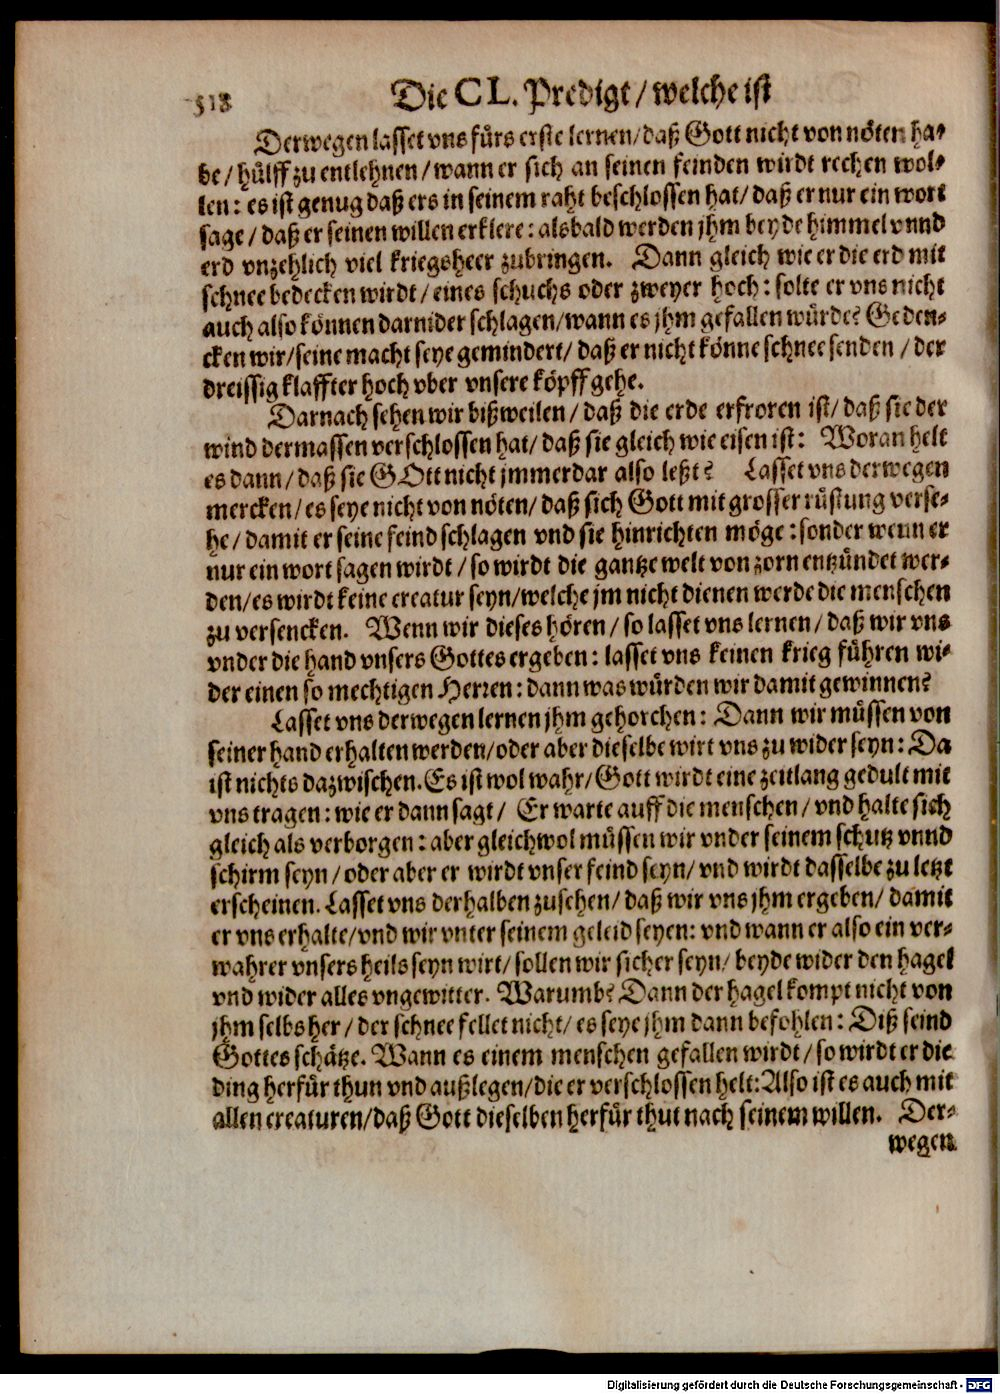 518 Die CL. Predigt / welche ist
Derwegen lasset vns fürs erste lernen/daß Gott nicht von nöten ha-
be / hülff zu entlehnen / wann er sich an seinen feinden wirdt rechen wol-
len: es ist genug daß ers in seinem raht beschlossen hat/ daß er nur ein wort
sage / daß er seinen willen erklere: alsbald werden jhm beyde himmel vnnd
erd vnzehlich viel kriegsheer zubringen. Dann gleich wie er die erd mit
schnee bedecken wirdt / eines schuchs oder zweyer hoch: solte er vns nicht
auch also können darnider schlagen/wann es jhm gefallen würde? Geden-
cken wir/seine macht seye gemindert/ daß er nicht könne schnee senden / der
dreissig klaffter hoch vber vnsere köpff gehe.
Darnach sehen wir bißweilen / daß die erde erfroren ist/ daß sie der
wind dermassen verschlossen hat/ daß sie gleich wie eisen ist: Woran helt
es dann / daß sie GOtt nicht jmmerdar also leßt? Lasset vns derwegen
mercken / es seye nicht von nöten/ daß sich Gott mit grosser rüstung verse-
he / damit er seine feind schlagen vnd sie hinrichten möge : sonder wenn er
nur ein wort sagen wirdt / so wirdt die gantze welt von zorn entzündet wer-
den/es wirdt keine creatur seyn/welche jm nicht dienen werde die menschen
zu versencken. Wenn wir dieses hören / so lasset vns lernen / daß wir vns
vnder die hand vnsers Gottes ergeben: lasset vns keinen krieg führen wi-
der einen so mechtigen Herren: dann was würden wir damit gewinnen?
Lasset vns derwegen lernen jhm gehorchen: Dann wir müssen von
seiner hand erhalten werden/oder aber dieselbe wirt vns zu wider seyn: Da
ist nichts dazwischen. Es ist wol wahr/ Gott wirdt eine zeitlang gedult mit
vns tragen: wie er dann sagt / Er warte auff die menschen / vnd halte sich
gleich als verborgen : aber gleichwol müssen wir vnder seinem schutz vnnd
schirm seyn / oder aber er wirdt vnser feind seyn/ vnd wirdt dasselbe zu letzt
erscheinen. Lasset vns derhalben zusehen/ daß wir vns jhm ergeben/ damit
er vns erhalte/vnd wir vnter seinem geleid seyen: vnd wann er also ein ver-
wahrer vnsers heils seyn wirt/ sollen wir sicher seyn/ beyde wider den hagel
vnd wider alles vngewitter. Warumb? Dann der hagel kompt nicht von
jhm selbs her / der schnee fellet nicht/ es seye jhm dann befohlen: Diß seind
Gottes schätze. Wann es einem menschen gefallen wirdt / so wirdt er die
ding herfür thun vnd außlegen/die er verschlossen helt: Also ist es auch mit
allen creaturen/daß Gott dieselben herfür thut nach seinem willen. Der-
wegen
Digitalisierung gefördert durch die Deutsche Forschungsgemeinschaft - DFG